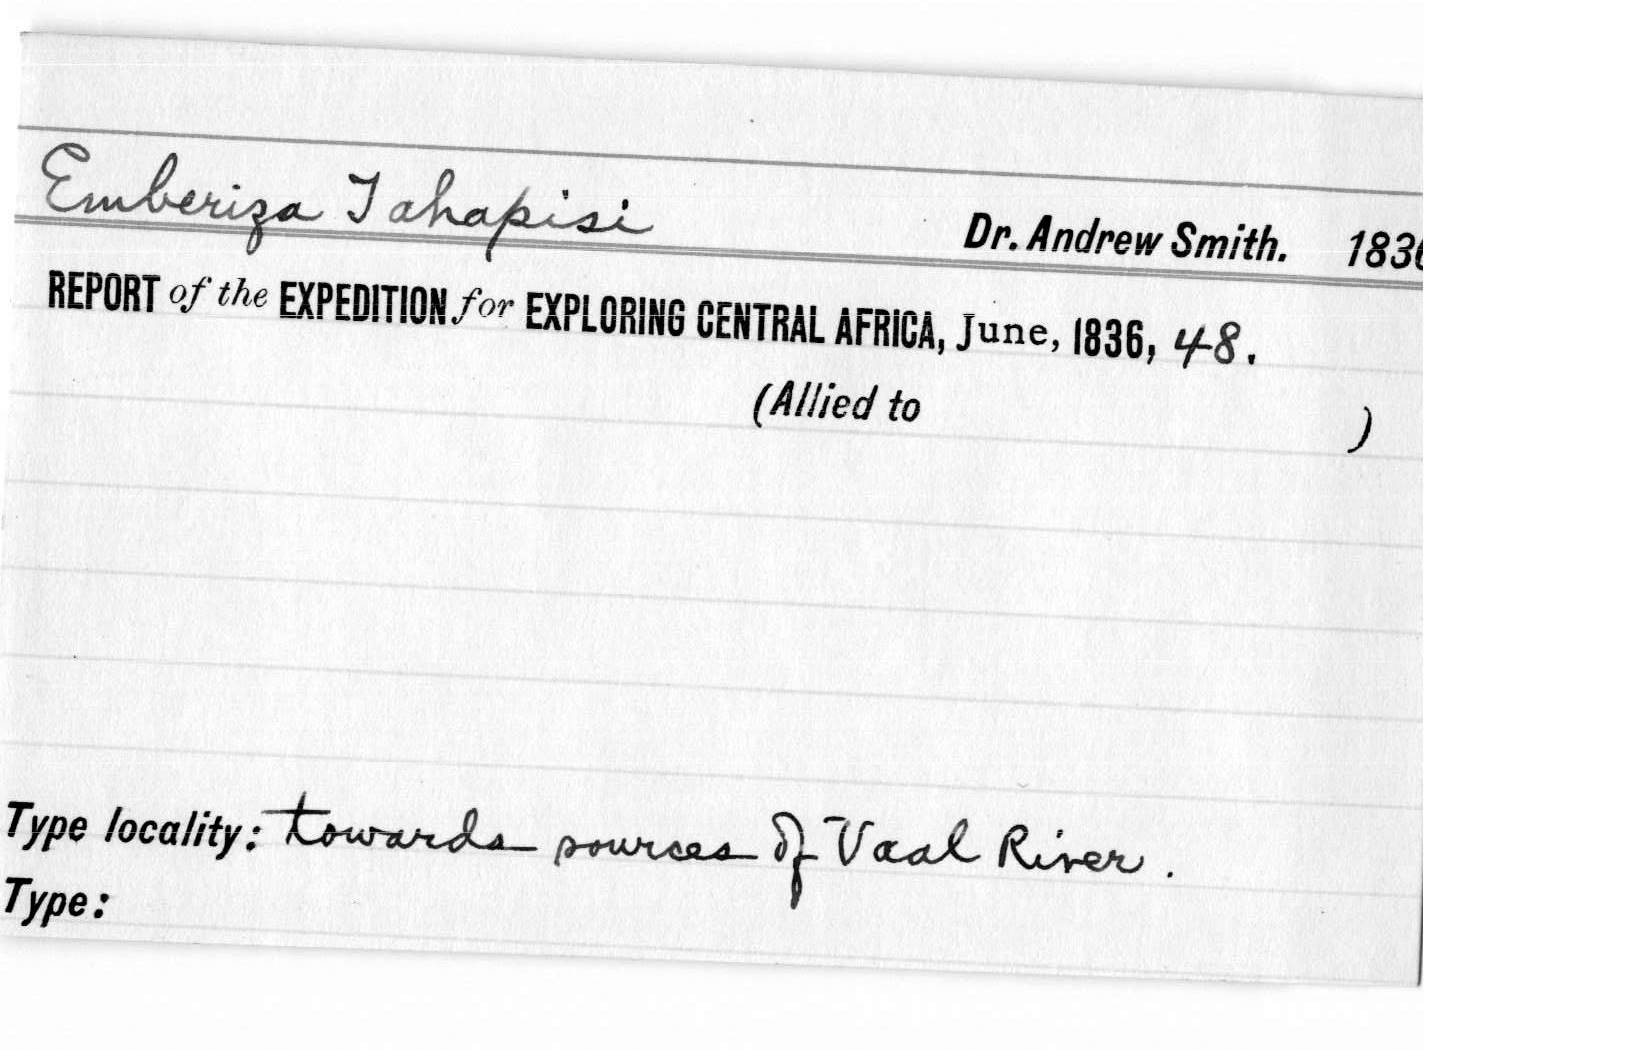 Emberiza Tahapisi Dr. Andrew Smith. 1836
REPORT of the EXPEDITION for EXPLORING CENTRAL AFRICA, June, 1836, 48.
(Allied to )
Type locality: towards sources of Vaal River.
Type: